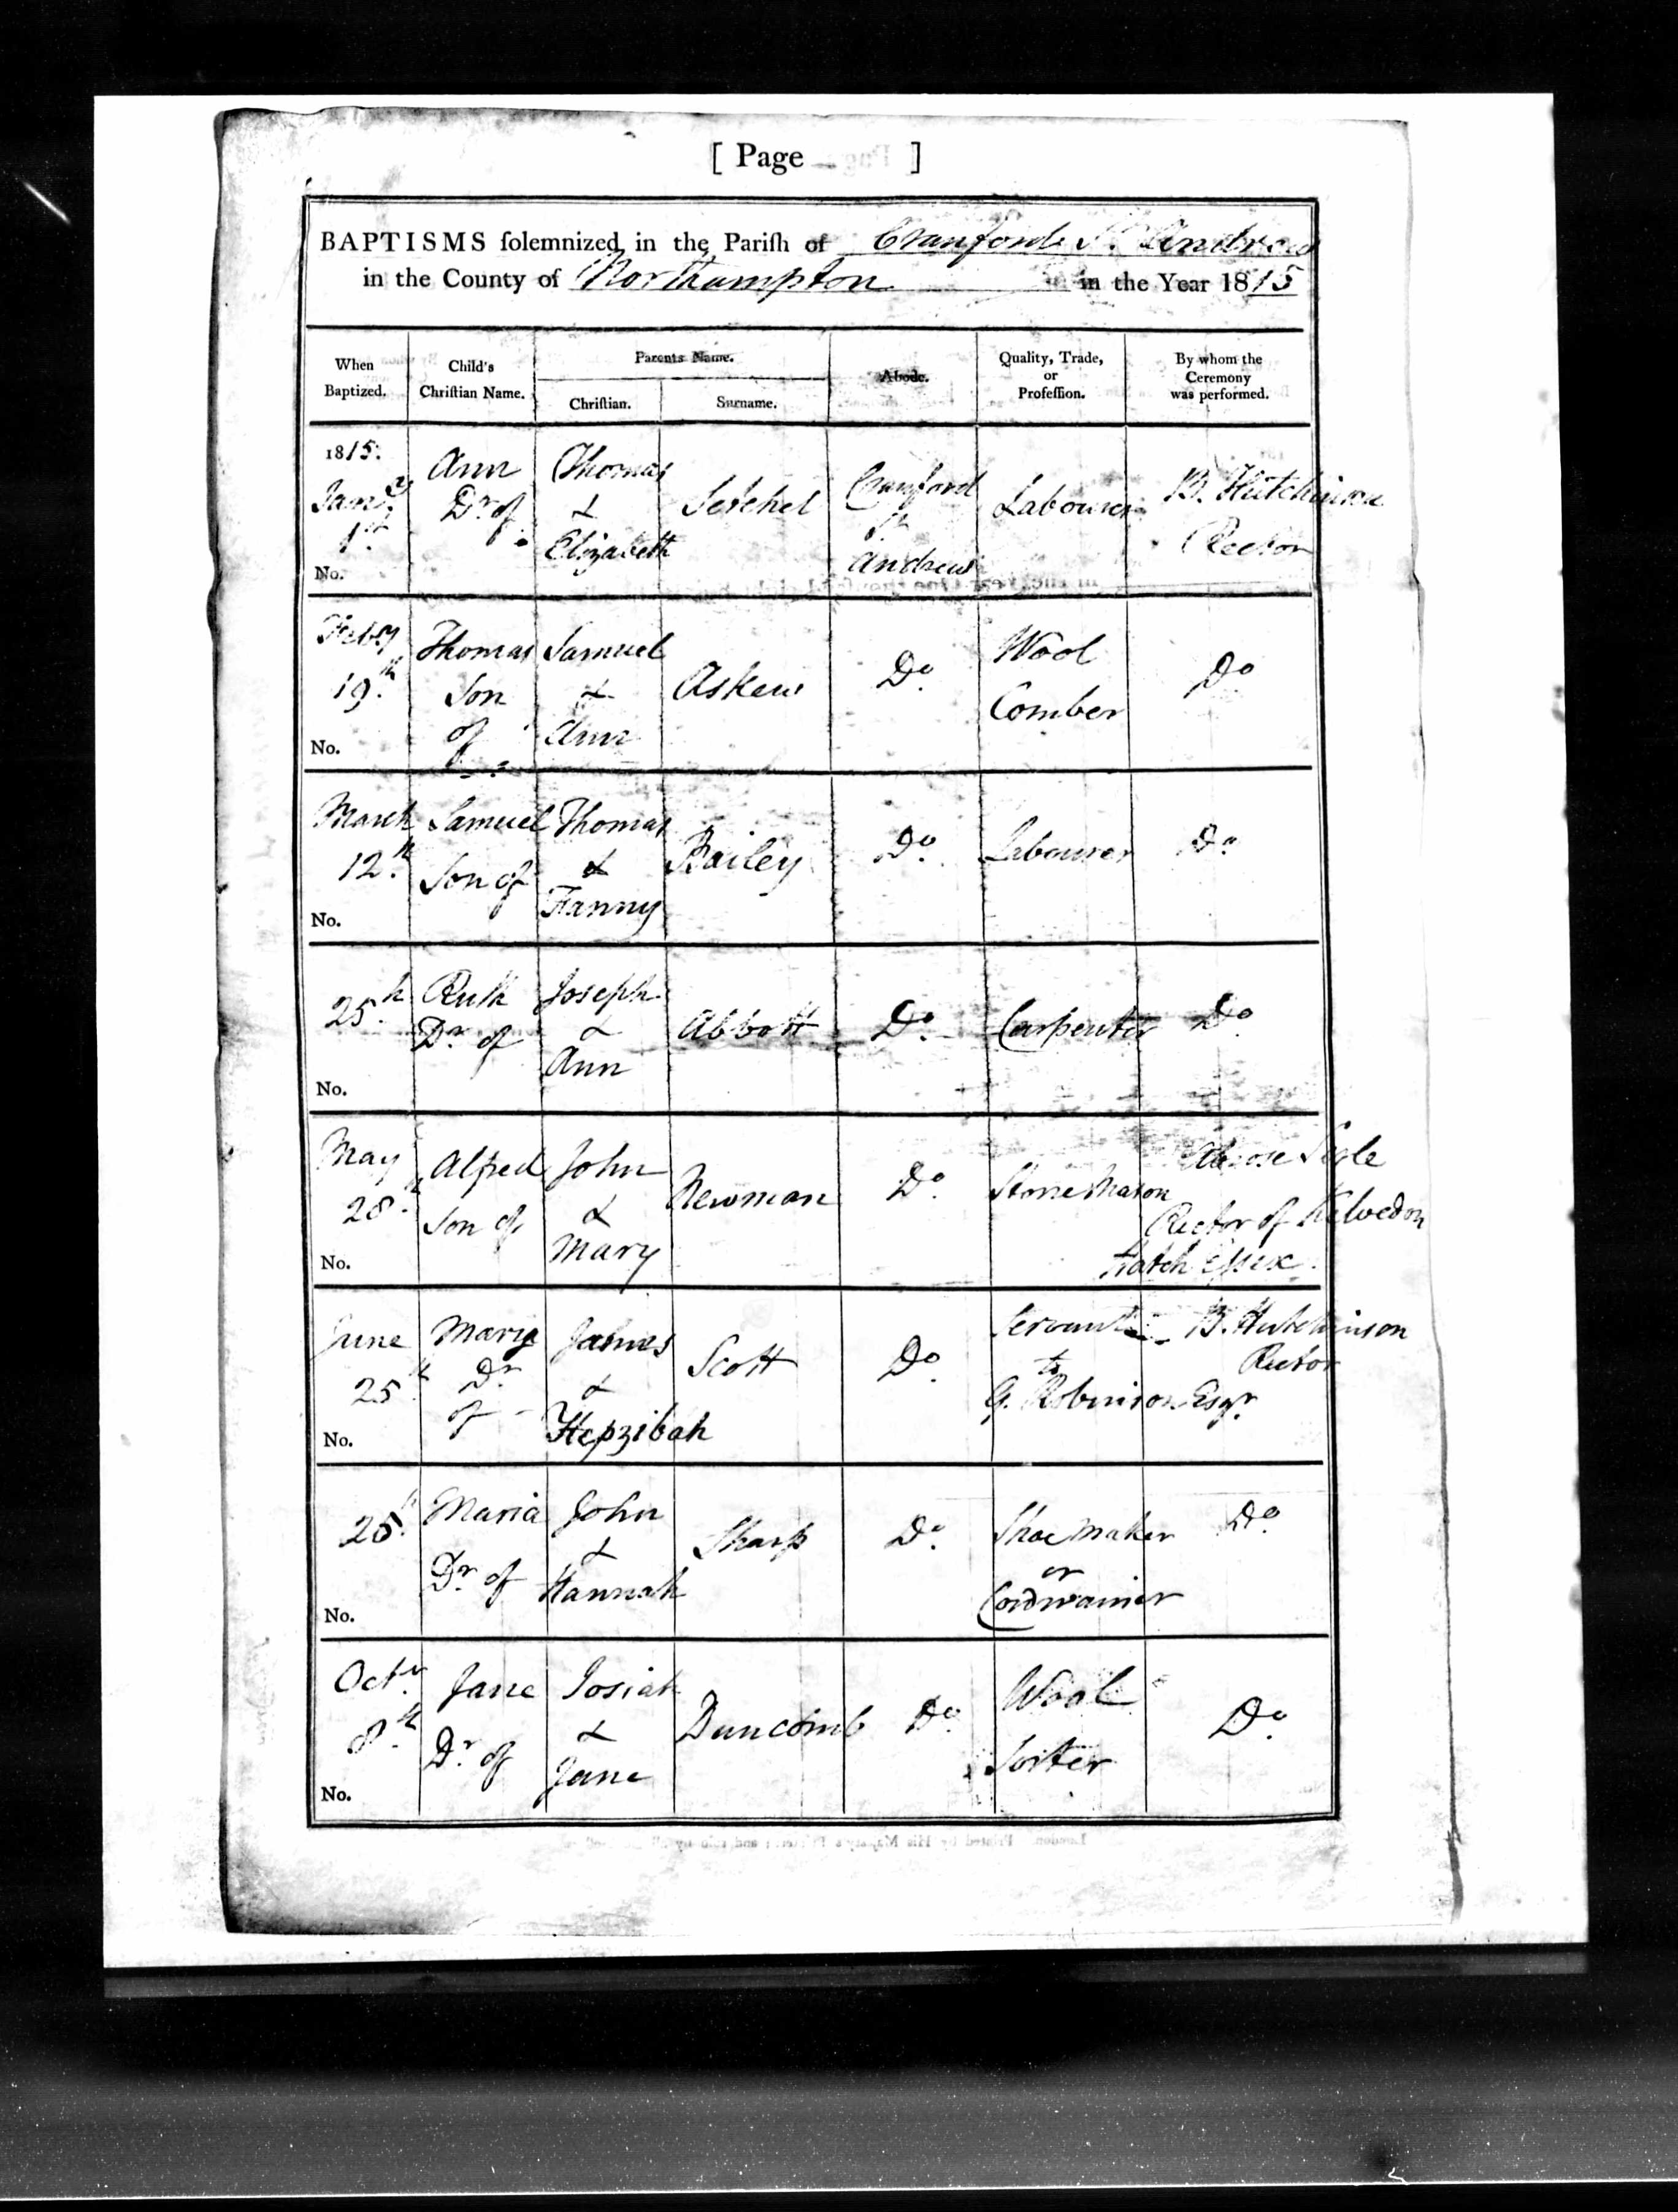 [ Page ]
BAPTISMS solemnized in the Parish of Cranford St. Andrews
in the County of Northampton in the Year 1815
When Baptized.
Child's Christian Name.
Parents Name.
Christian.
Surname.
Abode.
Quality, Trade, or Profession.
By whom the Ceremony was performed.
1815. Jany. 1st
Ann Dr. of
Thomas & Elizabeth
Cranford St. Andrews
Labourer
B. Hutchinson Rector
No.
Feby 19.th
Thomas Son of
Samuel & Ann
Askew
Do.
Wool Comber
Do
No.
March 12.th
Samuel Son of
Thomas & Fanny
Bailey
Do.
Labourer
Do.
No.
25.th
Ruth Dr. of
Joseph & Ann
Abbott
Do.
Carpenter
Do.
No.
May 28.th
Alfred Son of
John & Mary
Newman
Do.
Stone Mason
Rector of Kelvedon
Hatch Essex.
No.
June 25.th
Mary Dr. of
James & Hepzibah
Scott
Do.
Servant to G. Robinson Esqr.
B. Hutchinson Rector
No.
25.th
Maria Dr. of
John & Hannah
Sharp
Do.
Shoe Maker or Cordwainer
Do.
No.
Octr. 8.th
Jane Dr. of
Josiah & Jane
Duncomb
Do.
Wool Sorter
Do.
No.